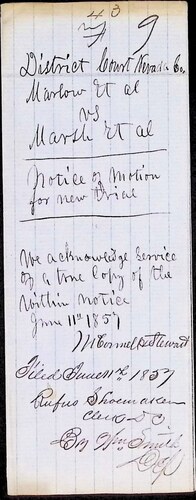 43
9
District Court Nevada Co.
Marlow Et al
vs
Marsh Et al
Notice of Motion
for new trial
We acknowledge service
of a true Copy of the
within notice
June 11th 1857
McConnel & Stewart
Filed June 11th 1857
Rufus Shoemaker
Clerk D C
By Wm Smith